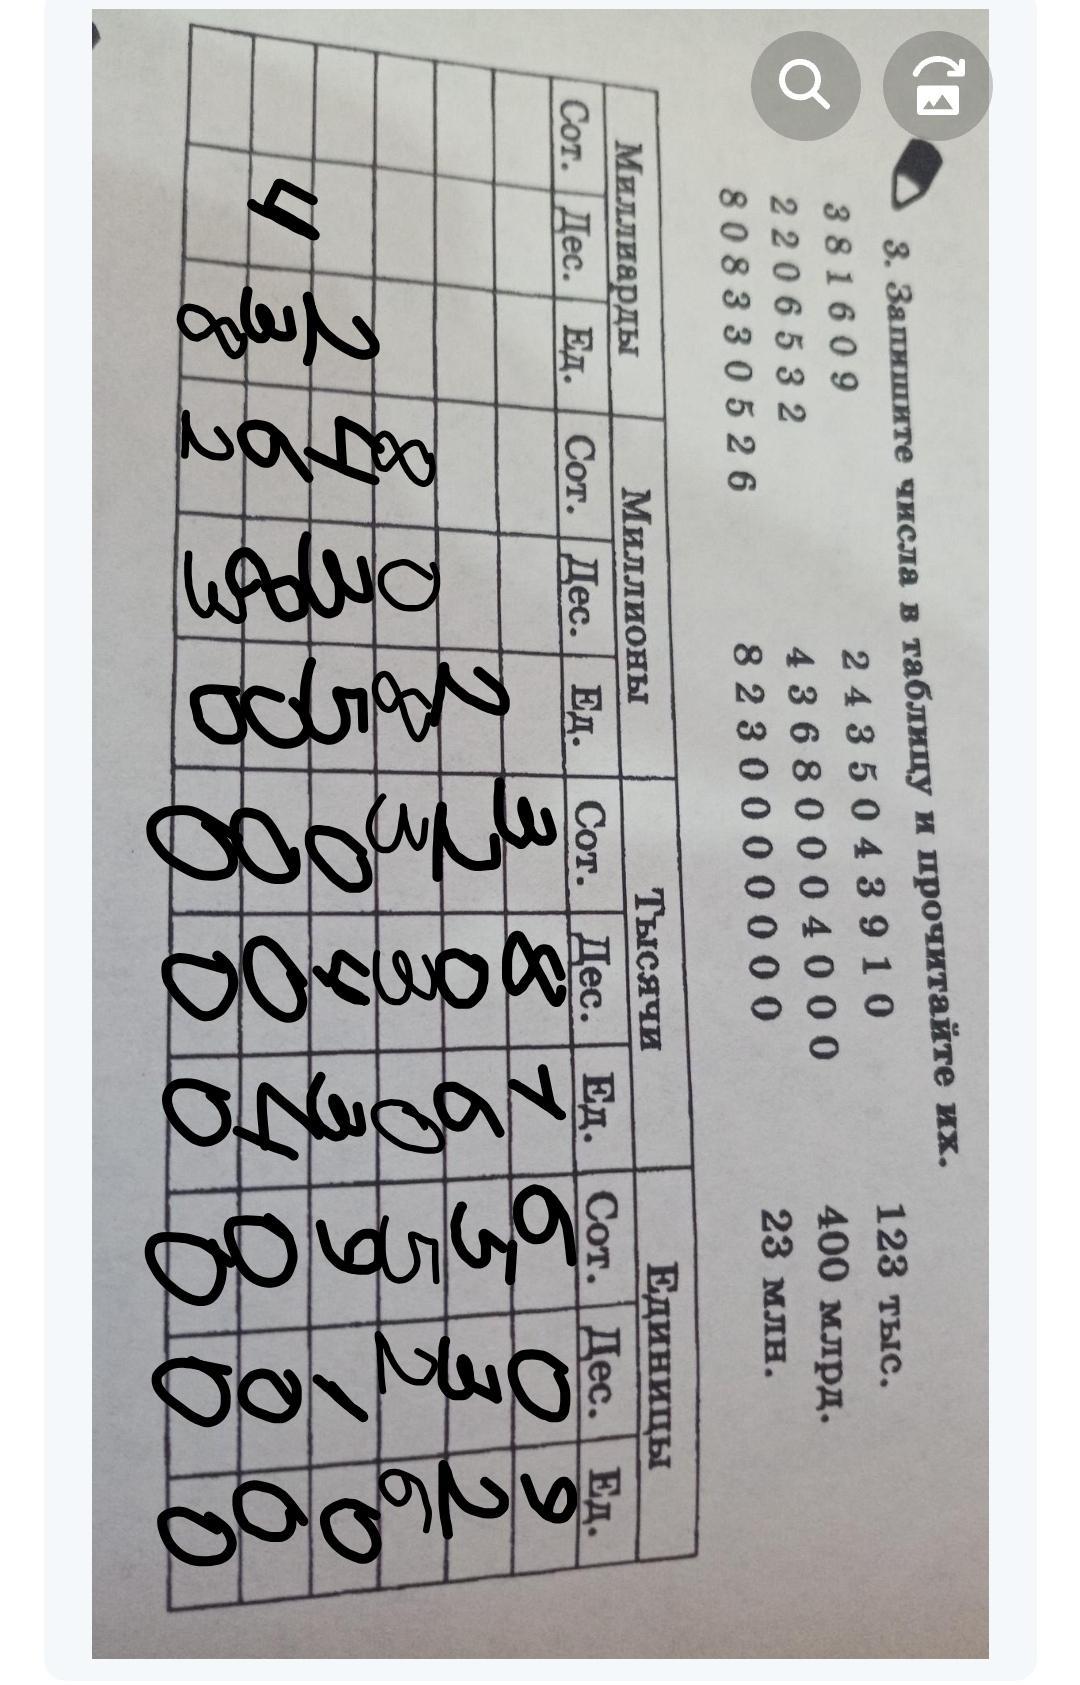 3. Запишите числа в таблицу и прочитайте их.
381609 2435043910 123 тыс.
2206532 43680004000 400 млрд.
808330526 8230000000 23 млн.
Миллиарды Миллионы Тысячи Единицы
Сот. Дес. Ед. Сот. Дес. Ед. Сот. Дес. Ед. Сот. Дес. Ед.
3 8 1 6 0 9
2 2 0 6 5 3 2
8 0 8 3 3 0 5 2 6
2 4 3 5 0 4 3 9 1 0
4 3 6 8 0 0 0 4 0 0 0
8 2 3 0 0 0 0 0 0 0